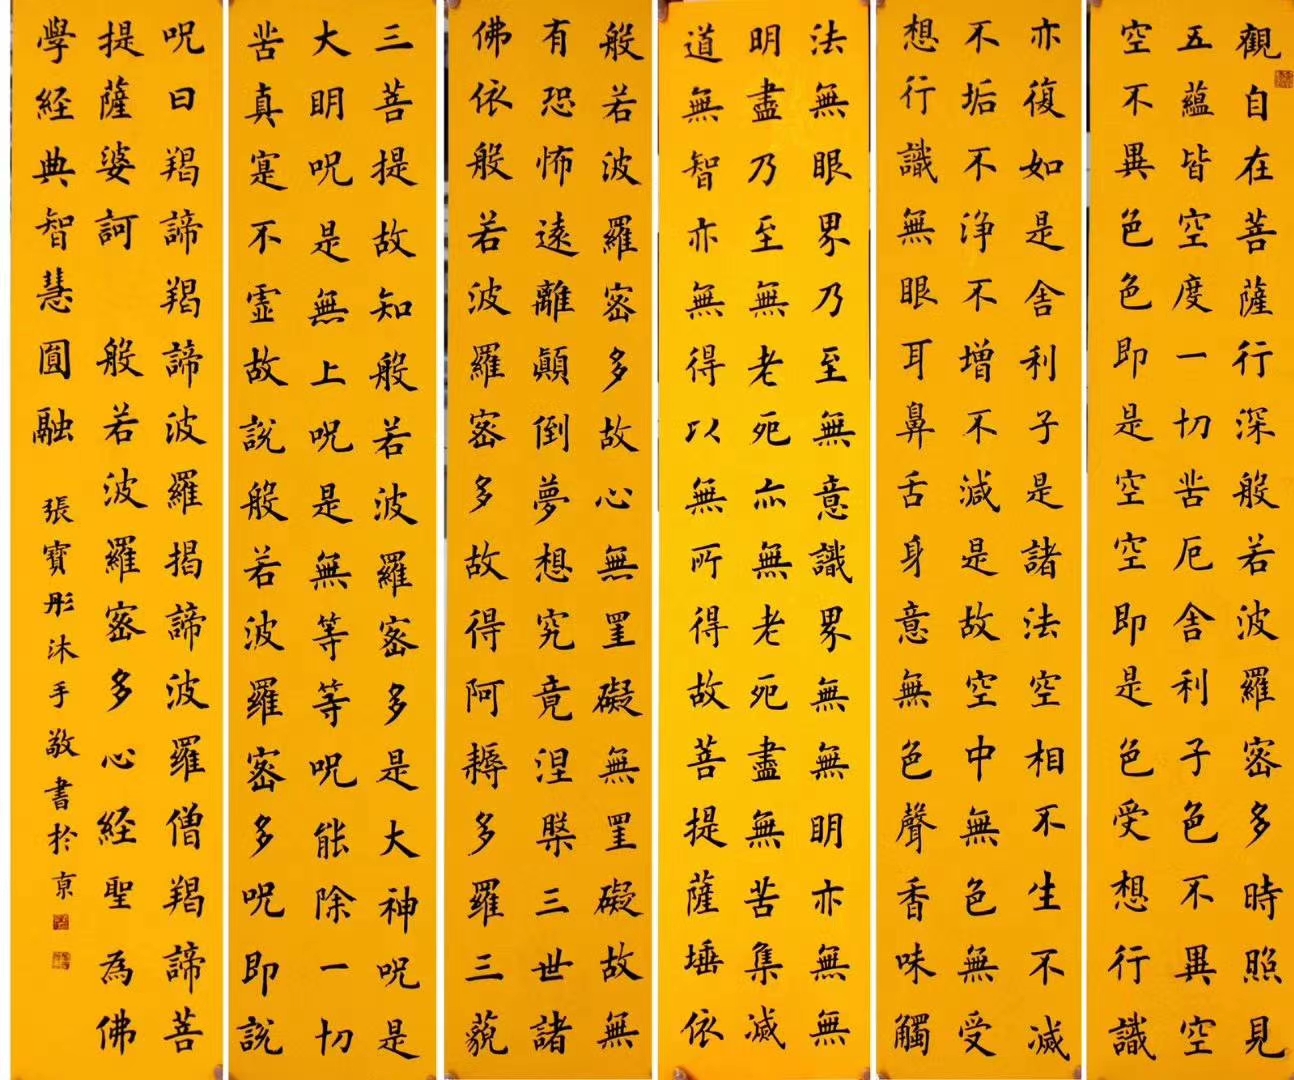 觀自在菩薩行深般若波羅密多時照見
五蘊皆空度一切苦厄舍利子色不異空
空不異色色即是空空即是色受想行識
亦復如是舍利子是諸法空相不生不滅
不垢不浄不增不減是故空中無色無受
想行識無眼耳鼻舌身意無色聲香味觸
法無眼界乃至無意識界無無明亦無無
明盡乃至無老死亦無老死盡無苦集滅
道無智亦無得以無所得故菩提薩埵依
般若波羅密多故心無罣礙無罣礙故無
有恐怖遠離顛倒夢想究竟涅槃三世諸
佛依般若波羅密多故得阿耨多羅三藐
三菩提故知般若波羅密多是大神呪是
大明呪是無上呪是無等等呪能除一切
苦真寔不虛故說般若波羅密多呪即說
呪曰羯諦羯諦波羅揭諦波羅僧羯諦菩
提薩婆訶 般若波羅密多心経聖為佛
學経典智慧圓融 張寶彤沐手敬書於京